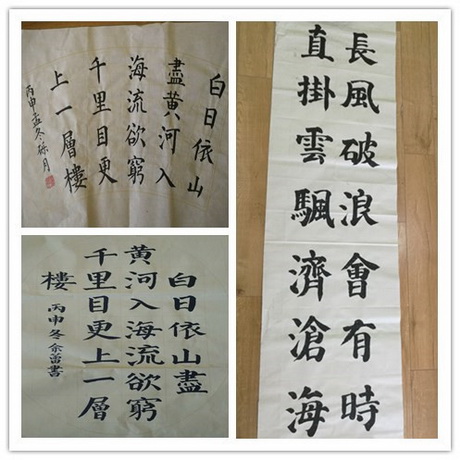 白日依山
盡黄河入
海流欲窮
千里目更
上一層樓
丙申孟冬
白日依山盡
黄河入海流欲窮
千里目更上一層
樓
丙申冬書
長風破浪會有時
直掛雲颿濟滄海